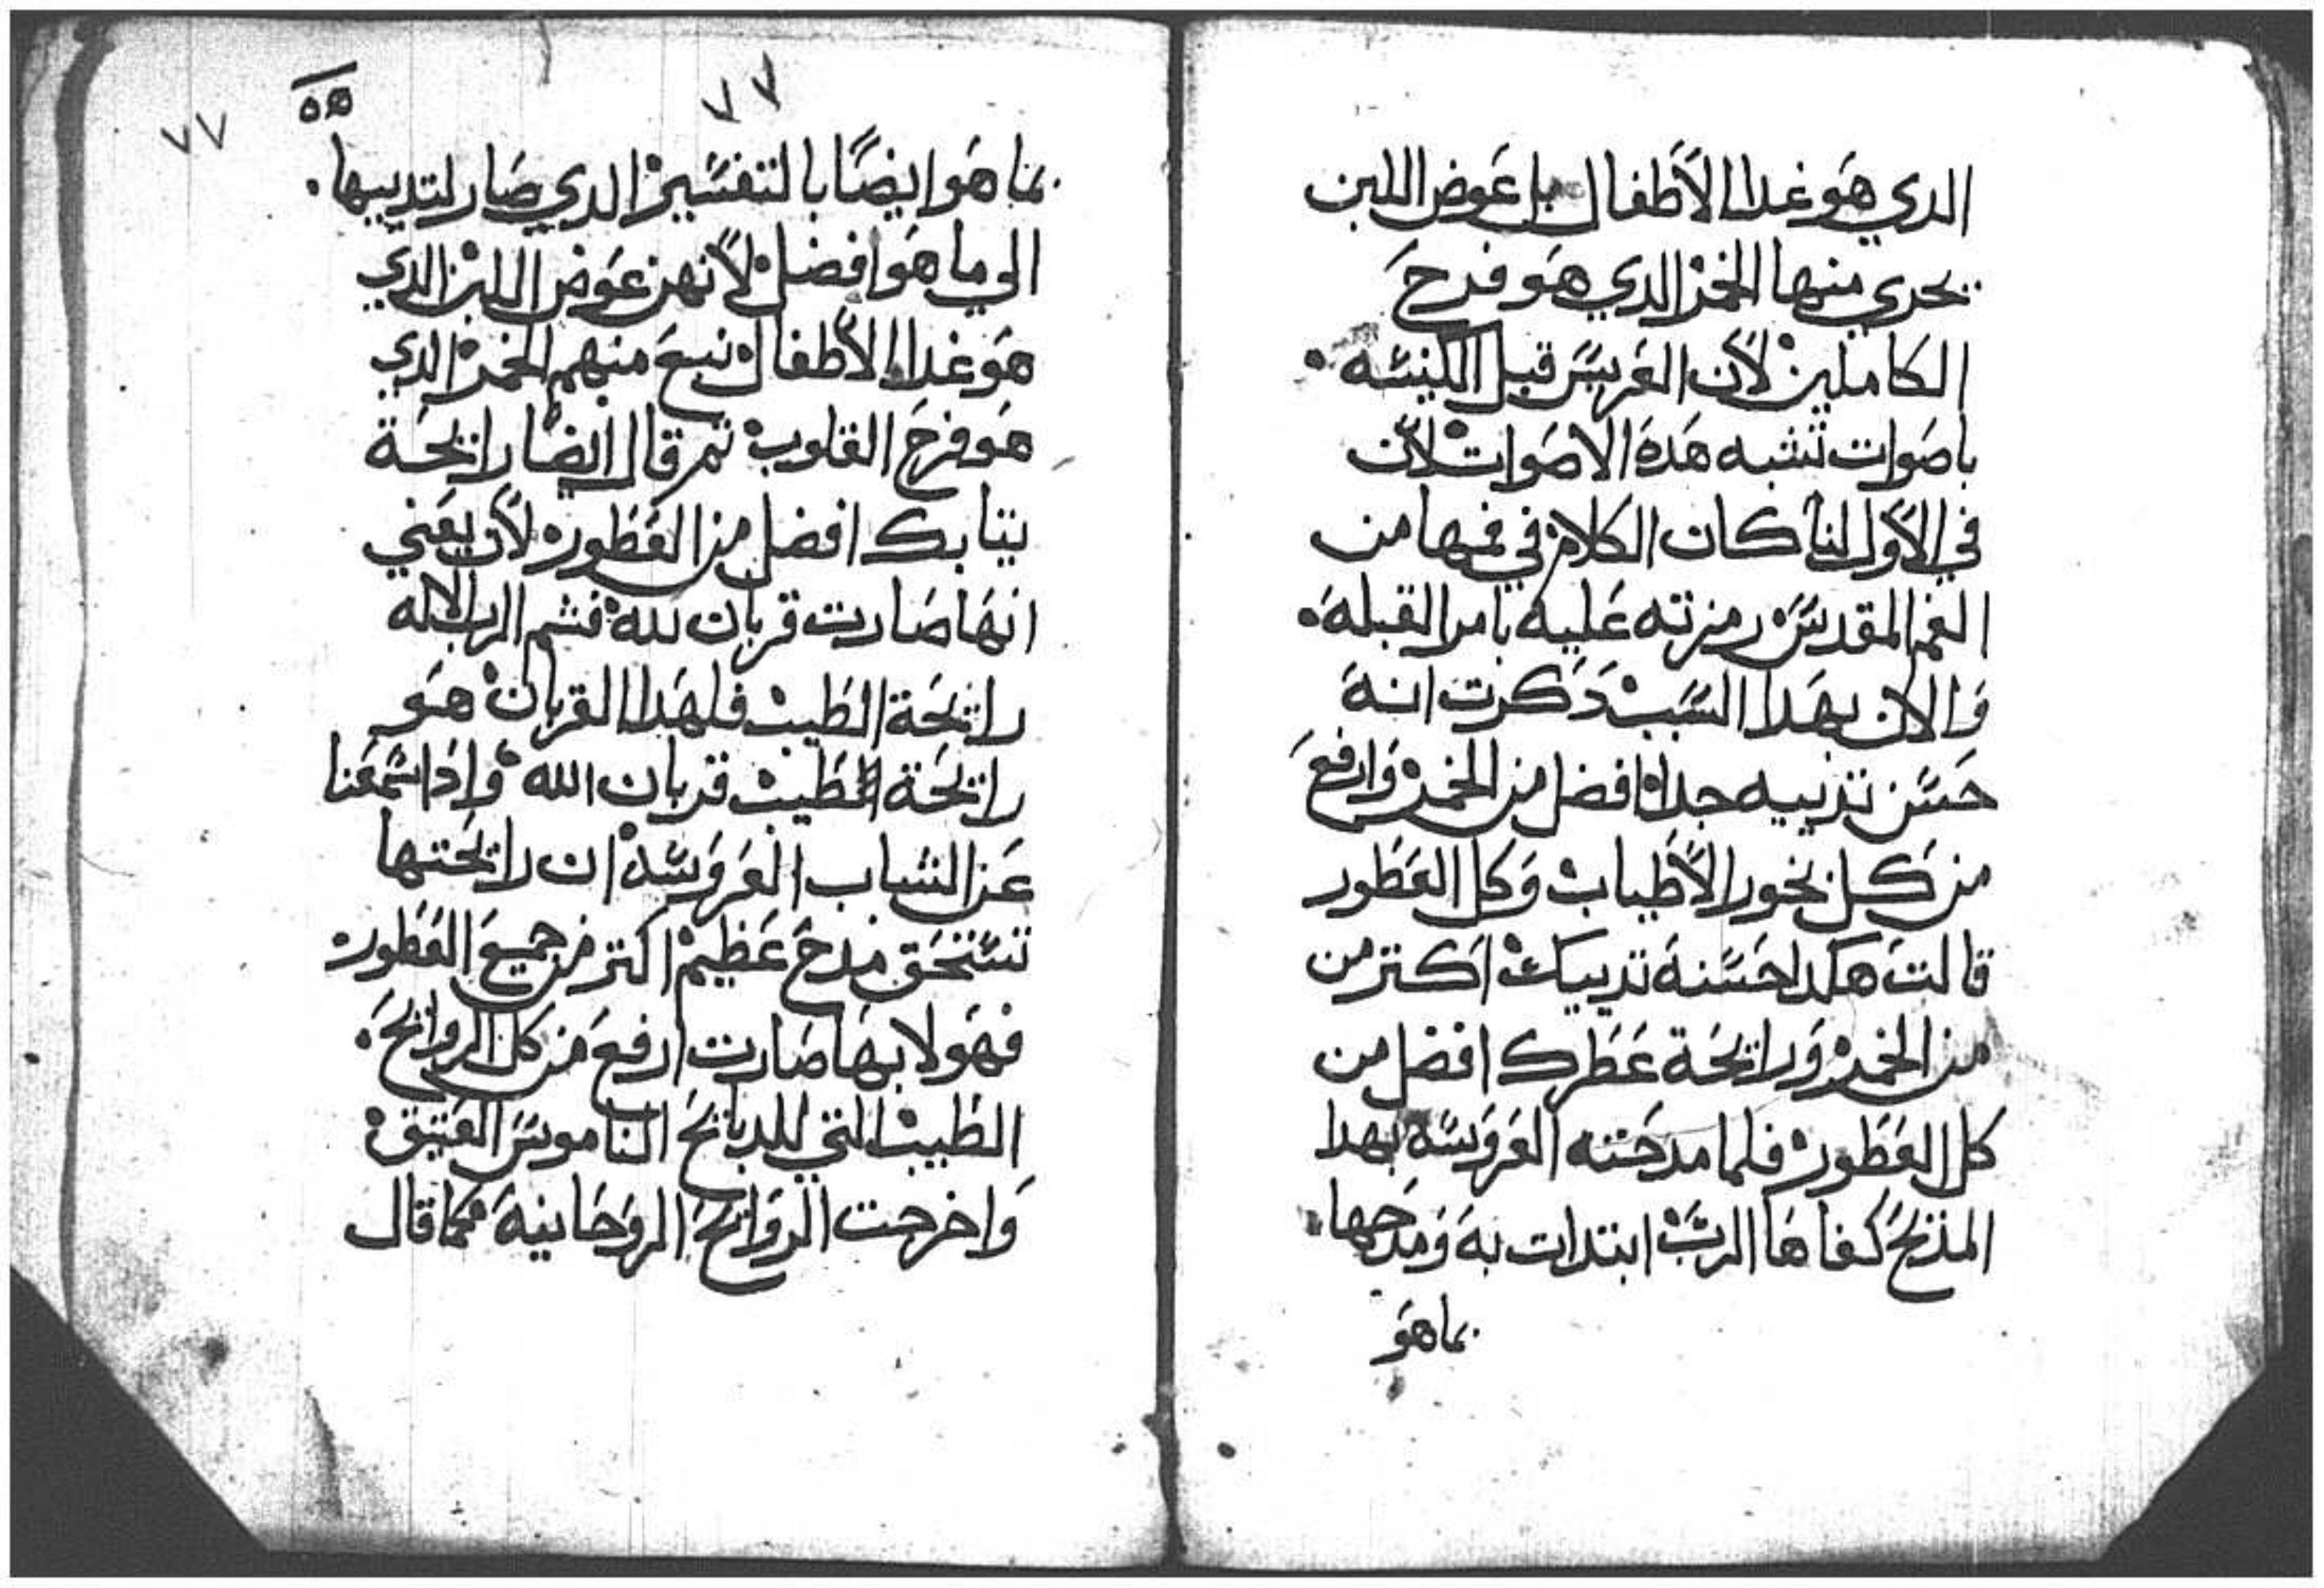 الدي هو غدا الأطفال بل عوض اللبن
يجري منها الخمر الدي هو فرح
الكاملين لأن العريس قبل الكنيسه
باصوات تشبه هده الاصوات لأن
في الأول لنا كان الكلام في فمها من
الفم المقدس رمزته عليه بامر القبله
والان بهدا السبب دكرت انه
حسن تدييه جدا افضل من الخمر وارفع
من كل بخور الأطياب وكل العطور
قالت هكدا حسنة تدييك اكتر من
من الخمر ورايحة عطرك افضل من
كل العطور فلما مدحته العروسه بهدا
المديح كفاها الرب ابتدات به ومدحها
بما هو
٧٧
٧٧
هه
بما هو ايضًا بالتفسير الدي صار لتدييها
الي ما هو افضل لأنهن عوض اللبن الدي
هو غدا الأطفال نبع منهم الخمر الدي
هو فرح القلوب تم قال ايضا رايحة
تيابك افضل من العطور لأن يعني
انها صارت قربان لله فشم الرب الاله
رايحة الطيب فلهدا القربان هو
رايحة الطيب قربان الله واذا سمعنا
عن الشاب العروسه ان رايحتها
تستحق مدح عظيم اكتر من جميع العطور
فهولا بها صارت ارفع من كل الروايح
الطيب التي للدبايح الناموس العتيق
واخرجت الروايح الروحانية كما قال